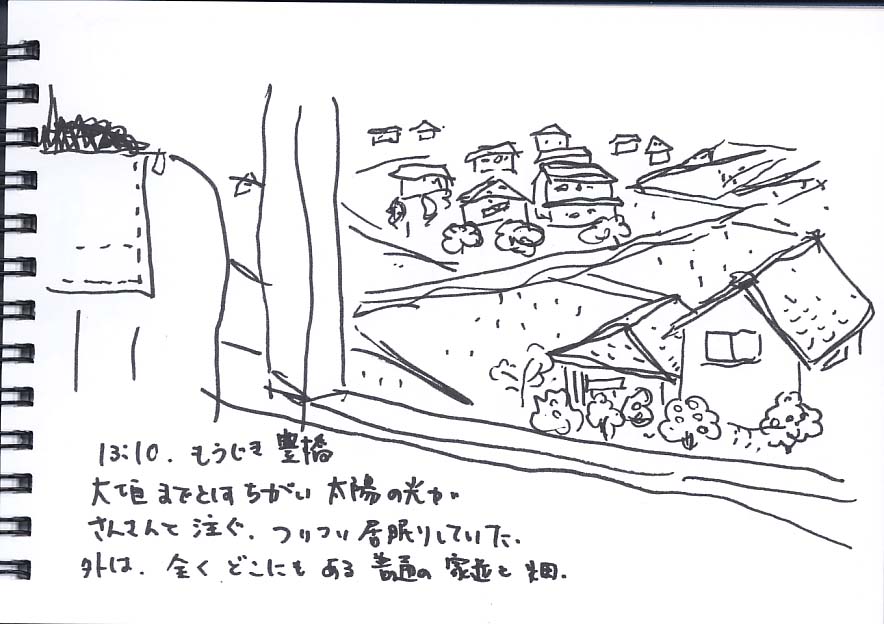 13:10. もうじき 豊橋
大垣までとはちがい 太陽の光が
さんさんと注ぐ. ついつい居眠りしていた.
外は. 全く どこにも ある 普通の 家並と 畑.